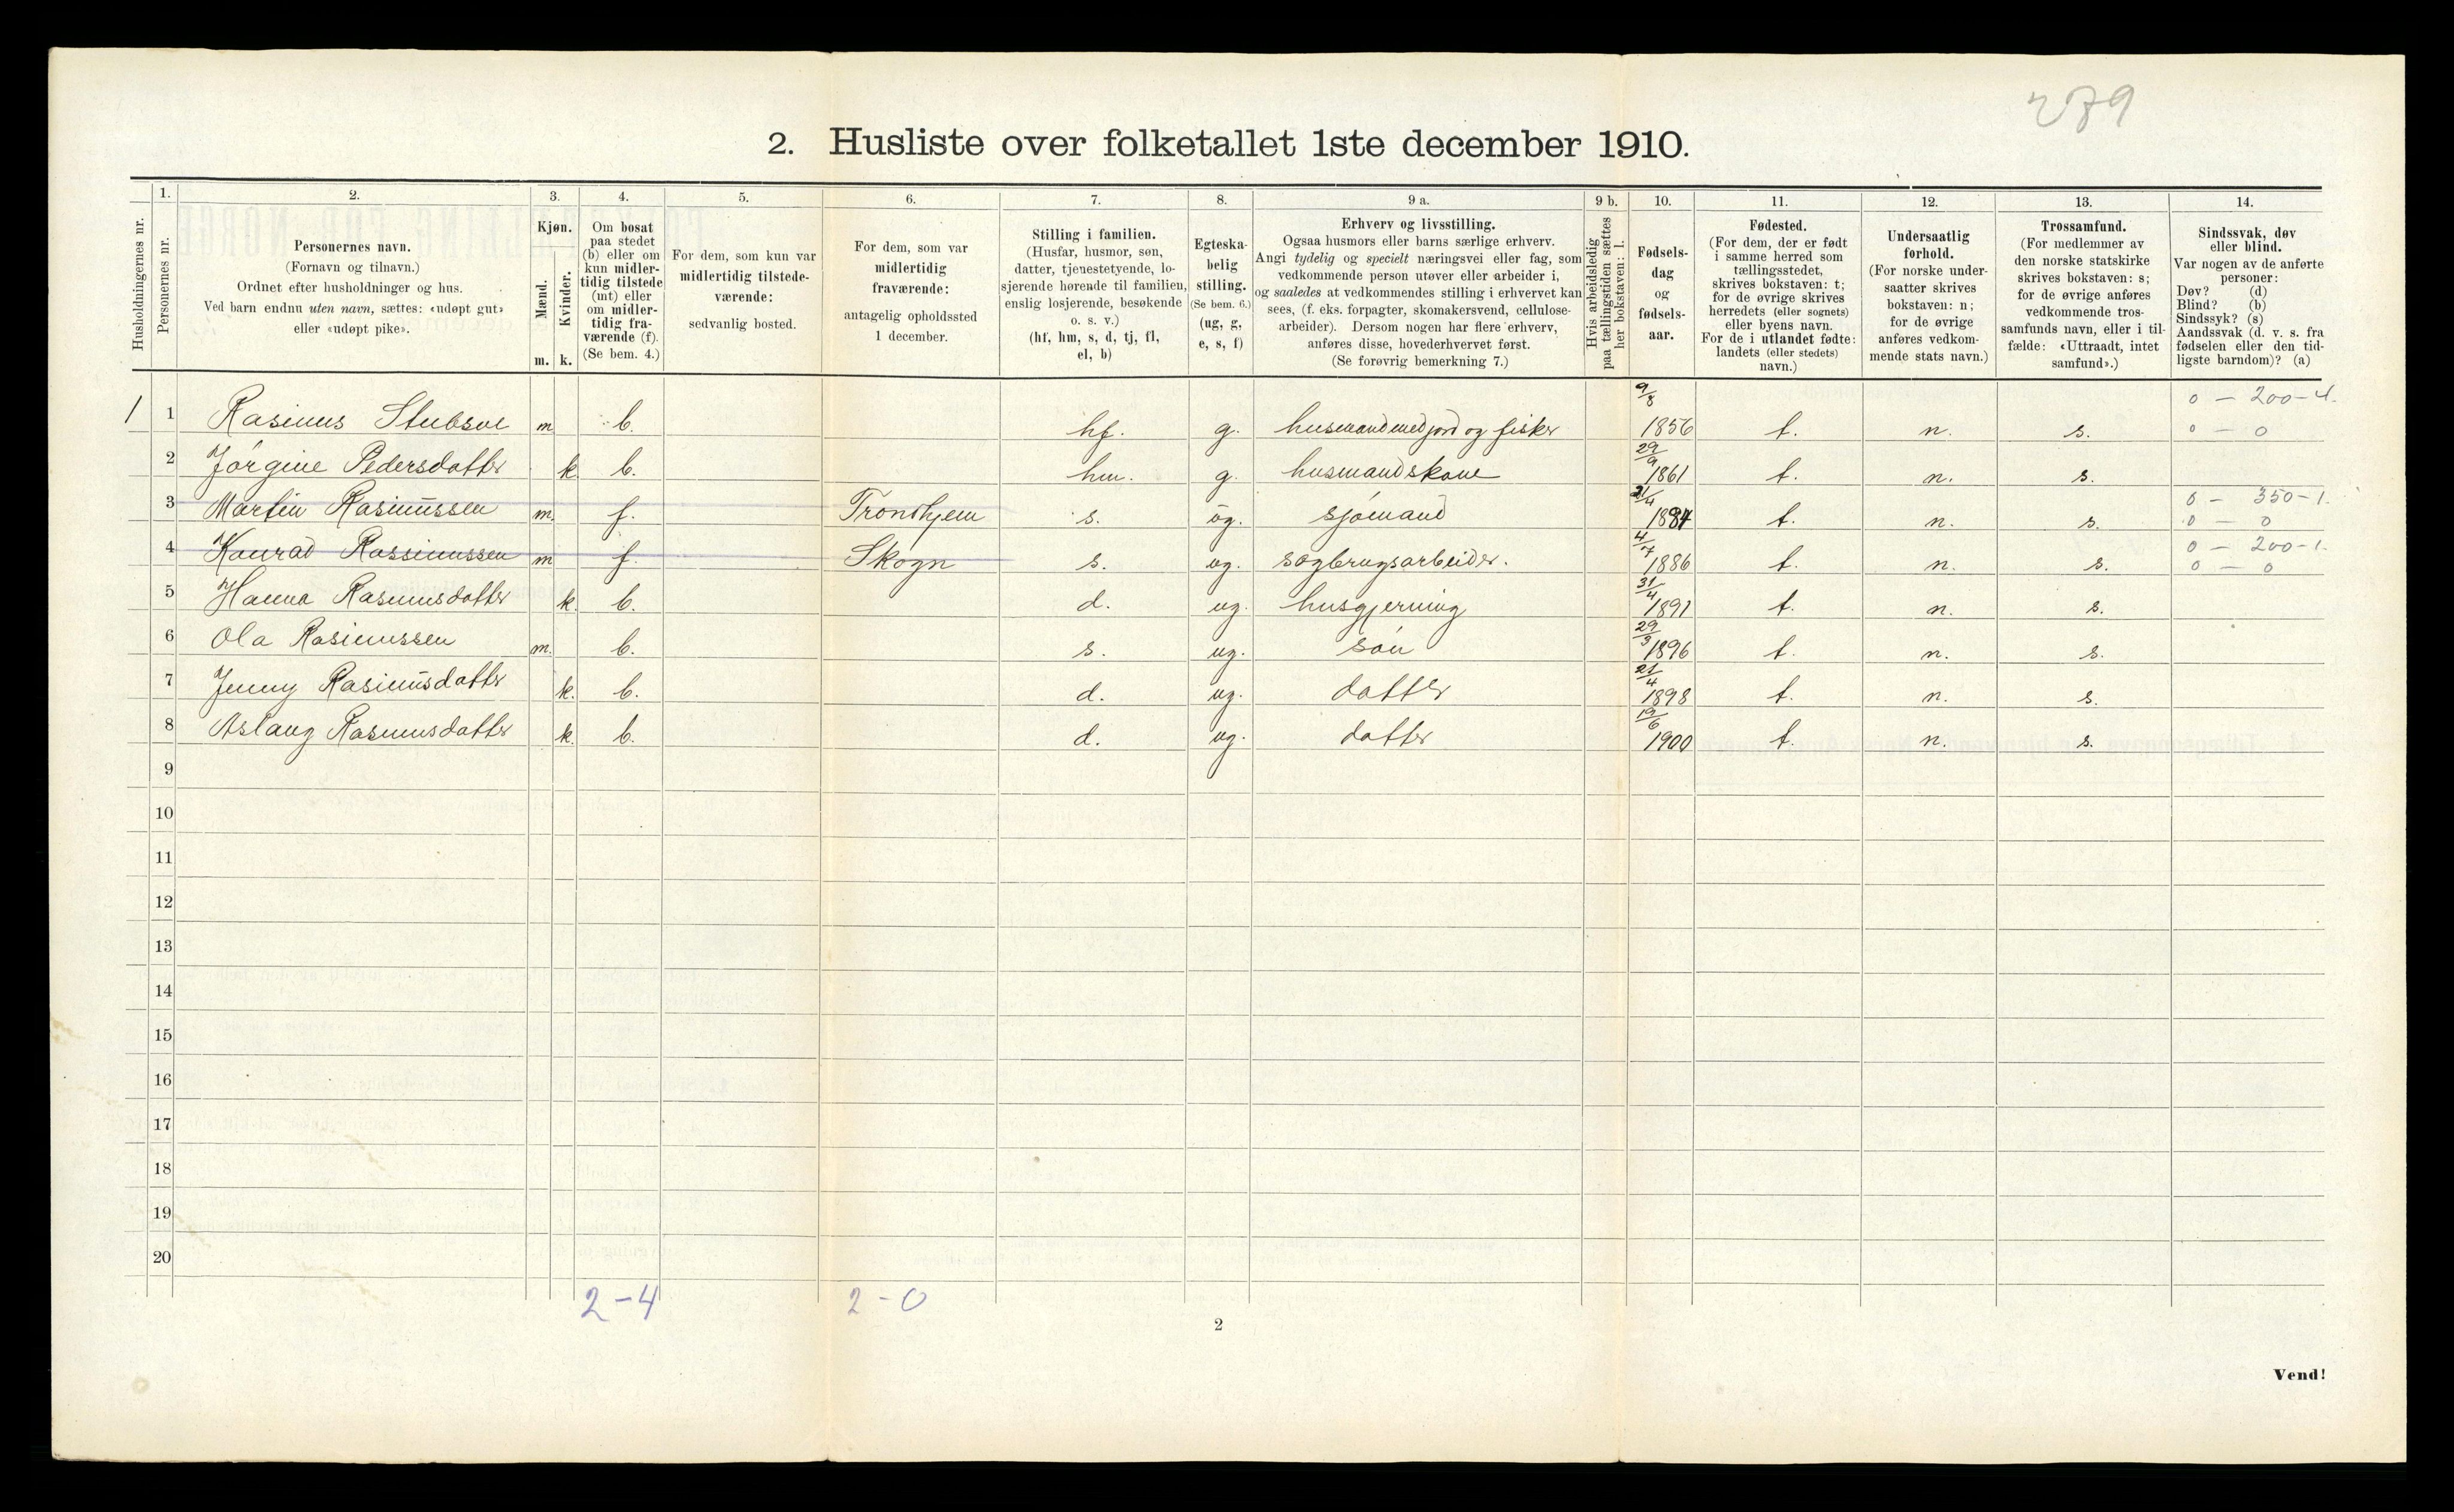 279
2. Husliste over folketallet 1ste december 1910.
Husholdningernes nr.
1.
Personernes nr.
2.
Personernes navn.
(Fornavn og tilnavn.)
Ordnet efter husholdninger og hus.
Ved barn endnu uten navn, sættes: «udøpt gut»
eller «udøpt pike».
3.
Kjøn.
Mænd.
Kvinder.
m. k.
4.
Om bosat
paa stedet
(b) eller om
kun midler-
tidig tilstede
(mt) eller
om midler-
tidig fra-
værende (f).
(Se bem. 4.)
5.
For dem, som kun var
midlertidig tilstede-
værende:
sedvanlig bosted.
6.
For dem, som var
midlertidig
fraværende:
antagelig opholdssted
1 december.
7.
Stilling i familien.
(Husfar, husmor, søn,
datter, tjenestetyende, lo-
sjerende hørende til familien,
enslig losjerende, besøkende
o. s. v.)
(hf, hm, s, d, tj, fl,
el, b)
8.
Egteska-
belig
stilling.
(Se bem. 6.)
(ug, g,
e, s, f)
9 a.
Erhverv og livsstilling.
Ogsaa husmors eller barns særlige erhverv.
Angi tydelig og specielt næringsvei eller fag, som
vedkommende person utøver eller arbeider i,
og saaledes at vedkommendes stilling i erhvervet kan
sees, (f. eks. forpagter, skomakersvend, cellulose-
arbeider). Dersom nogen har flere erhverv,
anføres disse, hovederhvervet først.
(Se forøvrig bemerkning 7.)
9 b.
Hvis arbeidsledig
paa tællingstiden sættes
her bokstaven: l.
10.
Fødsels-
dag
og
fødsels-
aar.
11.
Fødested.
(For dem, der er født
i samme herred som
tællingsstedet,
skrives bokstaven: t;
for de øvrige skrives
herredets (eller sognets)
eller byens navn.
For de i utlandet fødte:
landets (eller stedets)
navn.)
12.
Undersaatlig
forhold.
(For norske under-
saatter skrives
bokstaven: n;
for de øvrige
anføres vedkom-
mende stats navn.)
13.
Trossamfund.
(For medlemmer av
den norske statskirke
skrives bokstaven: s;
for de øvrige anføres
vedkommende tros-
samfunds navn, eller i til-
fælde: «Uttraadt, intet
samfund».)
14.
Sindssvak, døv
eller blind.
Var nogen av de anførte
personer:
Døv? (d)
Blind? (b)
Sindssyk? (s)
Aandssvak (d. v. s. fra
fødselen eller den tid-
ligste barndom)? (a)
0 - 200 - 4.
1 1 Rasmus Stubsve m b. hf. g. husmand med jord og fisker 9/8 1856 t. n. s. 0 - 0
2 Jørgine Pedersdatter k b. hm. g. husmandskone 29/9 1861 t. n. s.
0 - 350 - 1.
3 Martin Rasmussen m. f. Trondhjem s. ug. sjømand 21/4 1884 t. n. s. 0 - 0
0 - 200 - 1.
4 Konrad Rassmussen m f. Skogn s. ug. sagbrugsarbeider. 4/7 1886 t. n. s. 0 - 0
5 Hanna Rasmusdatter k. b. d. ug. husgjerning 31/4 1891 t. n. s.
6 Ola Rasmussen m. b. s. ug. søn 29/3 1896 t. n. s.
7 Jenny Rasmusdatter k. b. d. ug. datter 21/4 1898 t. n. s.
8 Aslaug Rasmusdatter k. b. d. ug. datter 19/6 1900 t. n. s.
9
10
11
12
13
14
15
16
17
18
19
20
2 - 4 2 - 0
2
Vend!